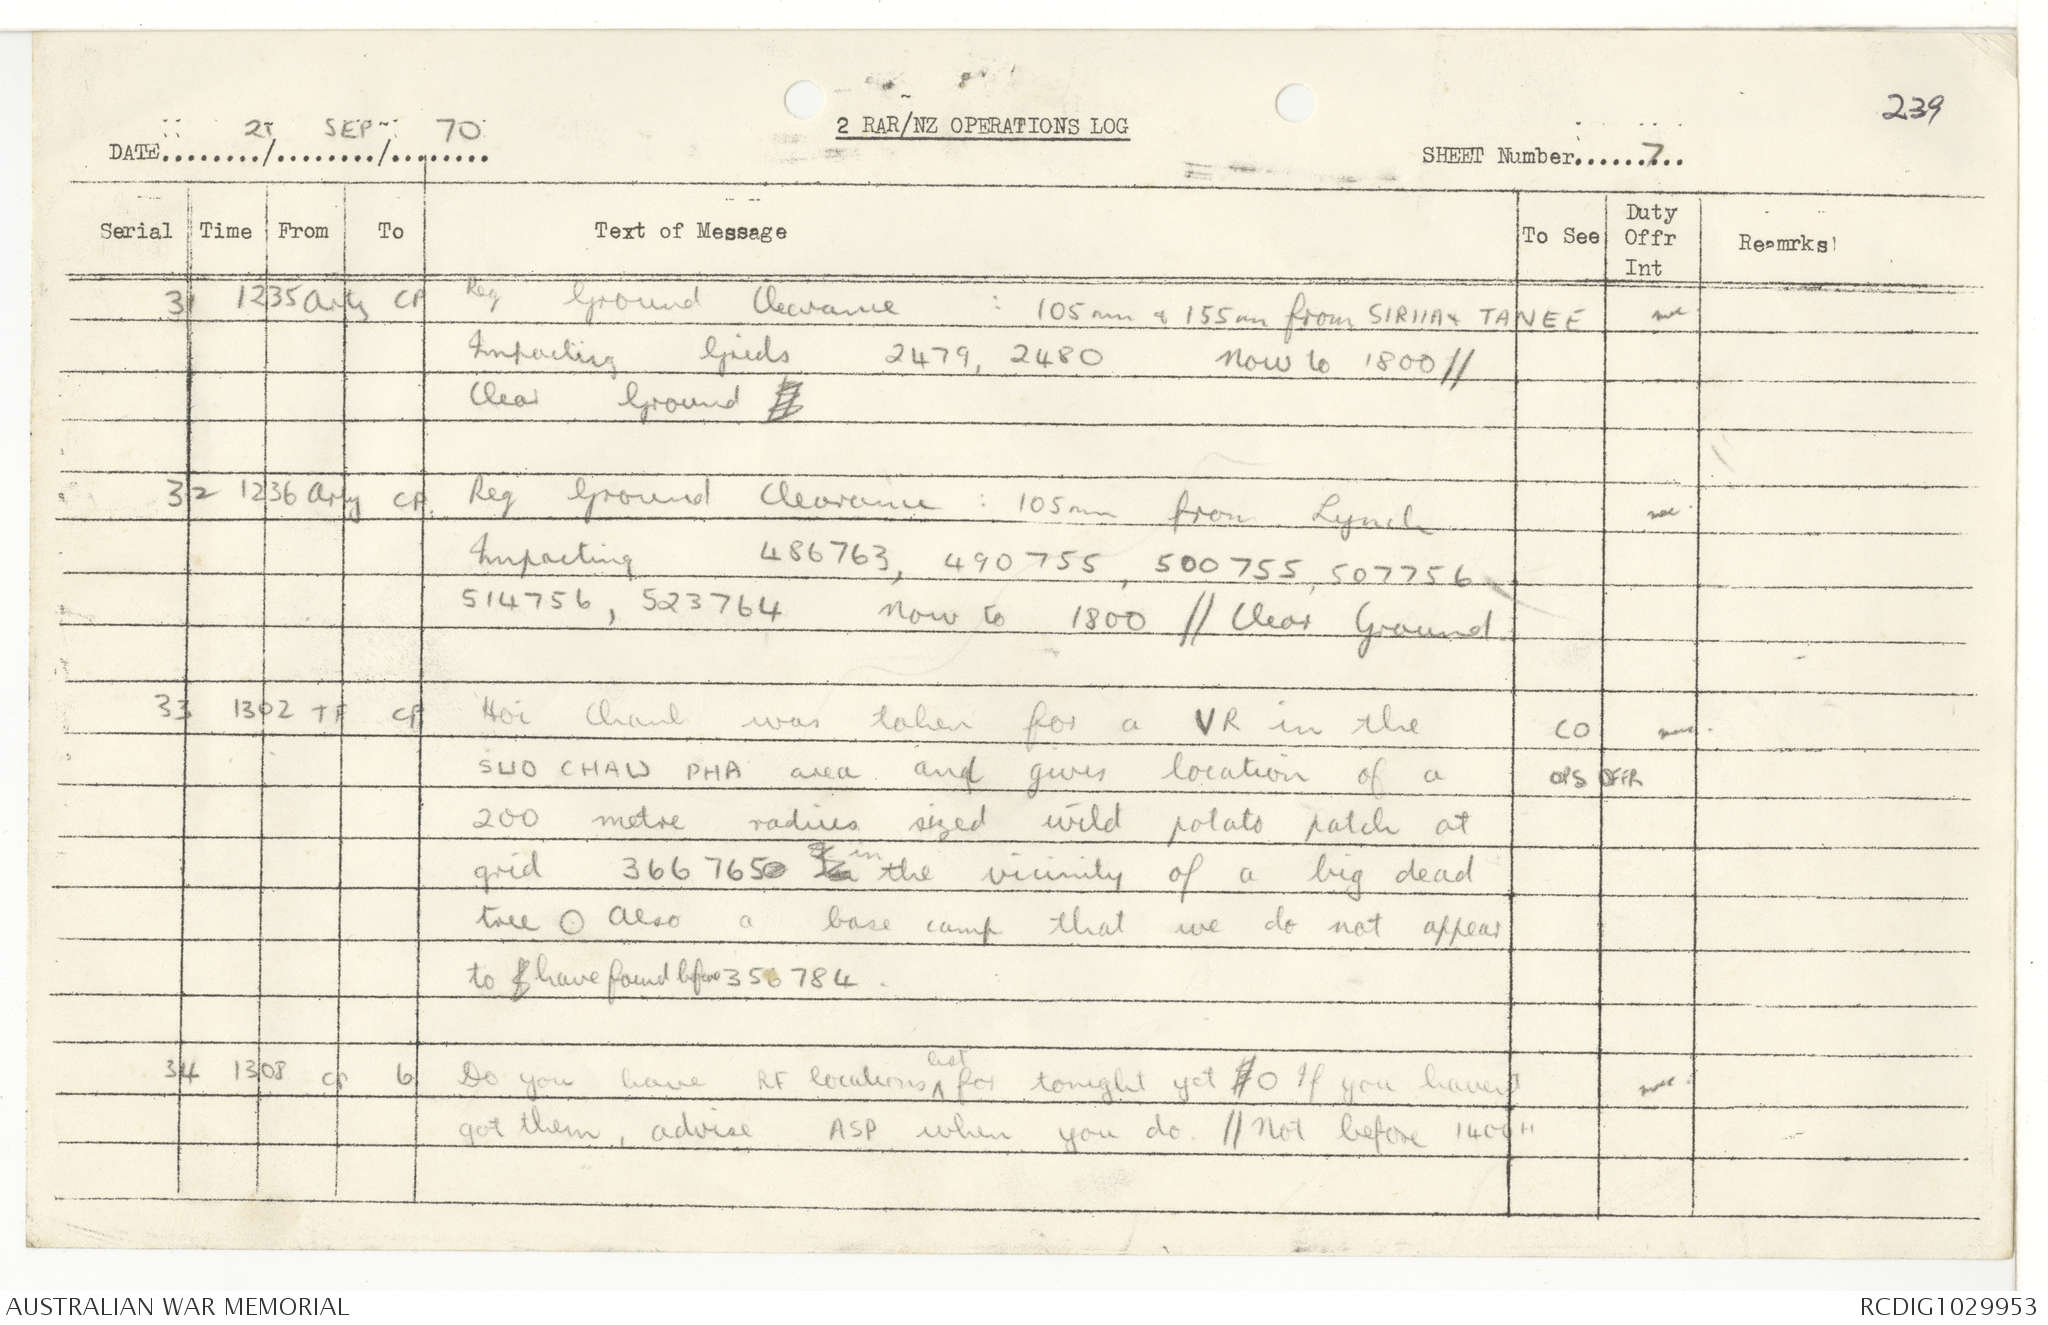 239
2 RAR/NZ OPERATIONS LOG
DATE 21 / SEP / 70
SHEET Number 7
Serial Time From To Text of Message To See Duty Offr Int Reamrks
31 1235 Arty CP Req Ground Clearance : 105mm & 155mm from & TANEE
Impacting Grids 2479, 2480 Now to 1800 //
Clear Ground
32 1236 Arty CP. Req Ground Clearance : 105mm from Lynch
Impacting 486763, 490755, 500755, 507756
514756, 523764 Now to 1800 // Clear Ground.
33 1302 TF CP Hoi Chanh was taken for a VR in the CO
SUO CHAU PHA area and gives location of a OPS OFFR
200 metre radius sized wild potato patch at
grid 366765 in the vicinity of a big dead
tree O Also a base camp that we do not appear
to have found before 356784.
34 1308 CP 6 Do you have RF locations list for tonight yet O If you haven't
got them, advise ASP when you do. // Not before 1400H
AUSTRALIAN WAR MEMORIAL
RCDIG1029953